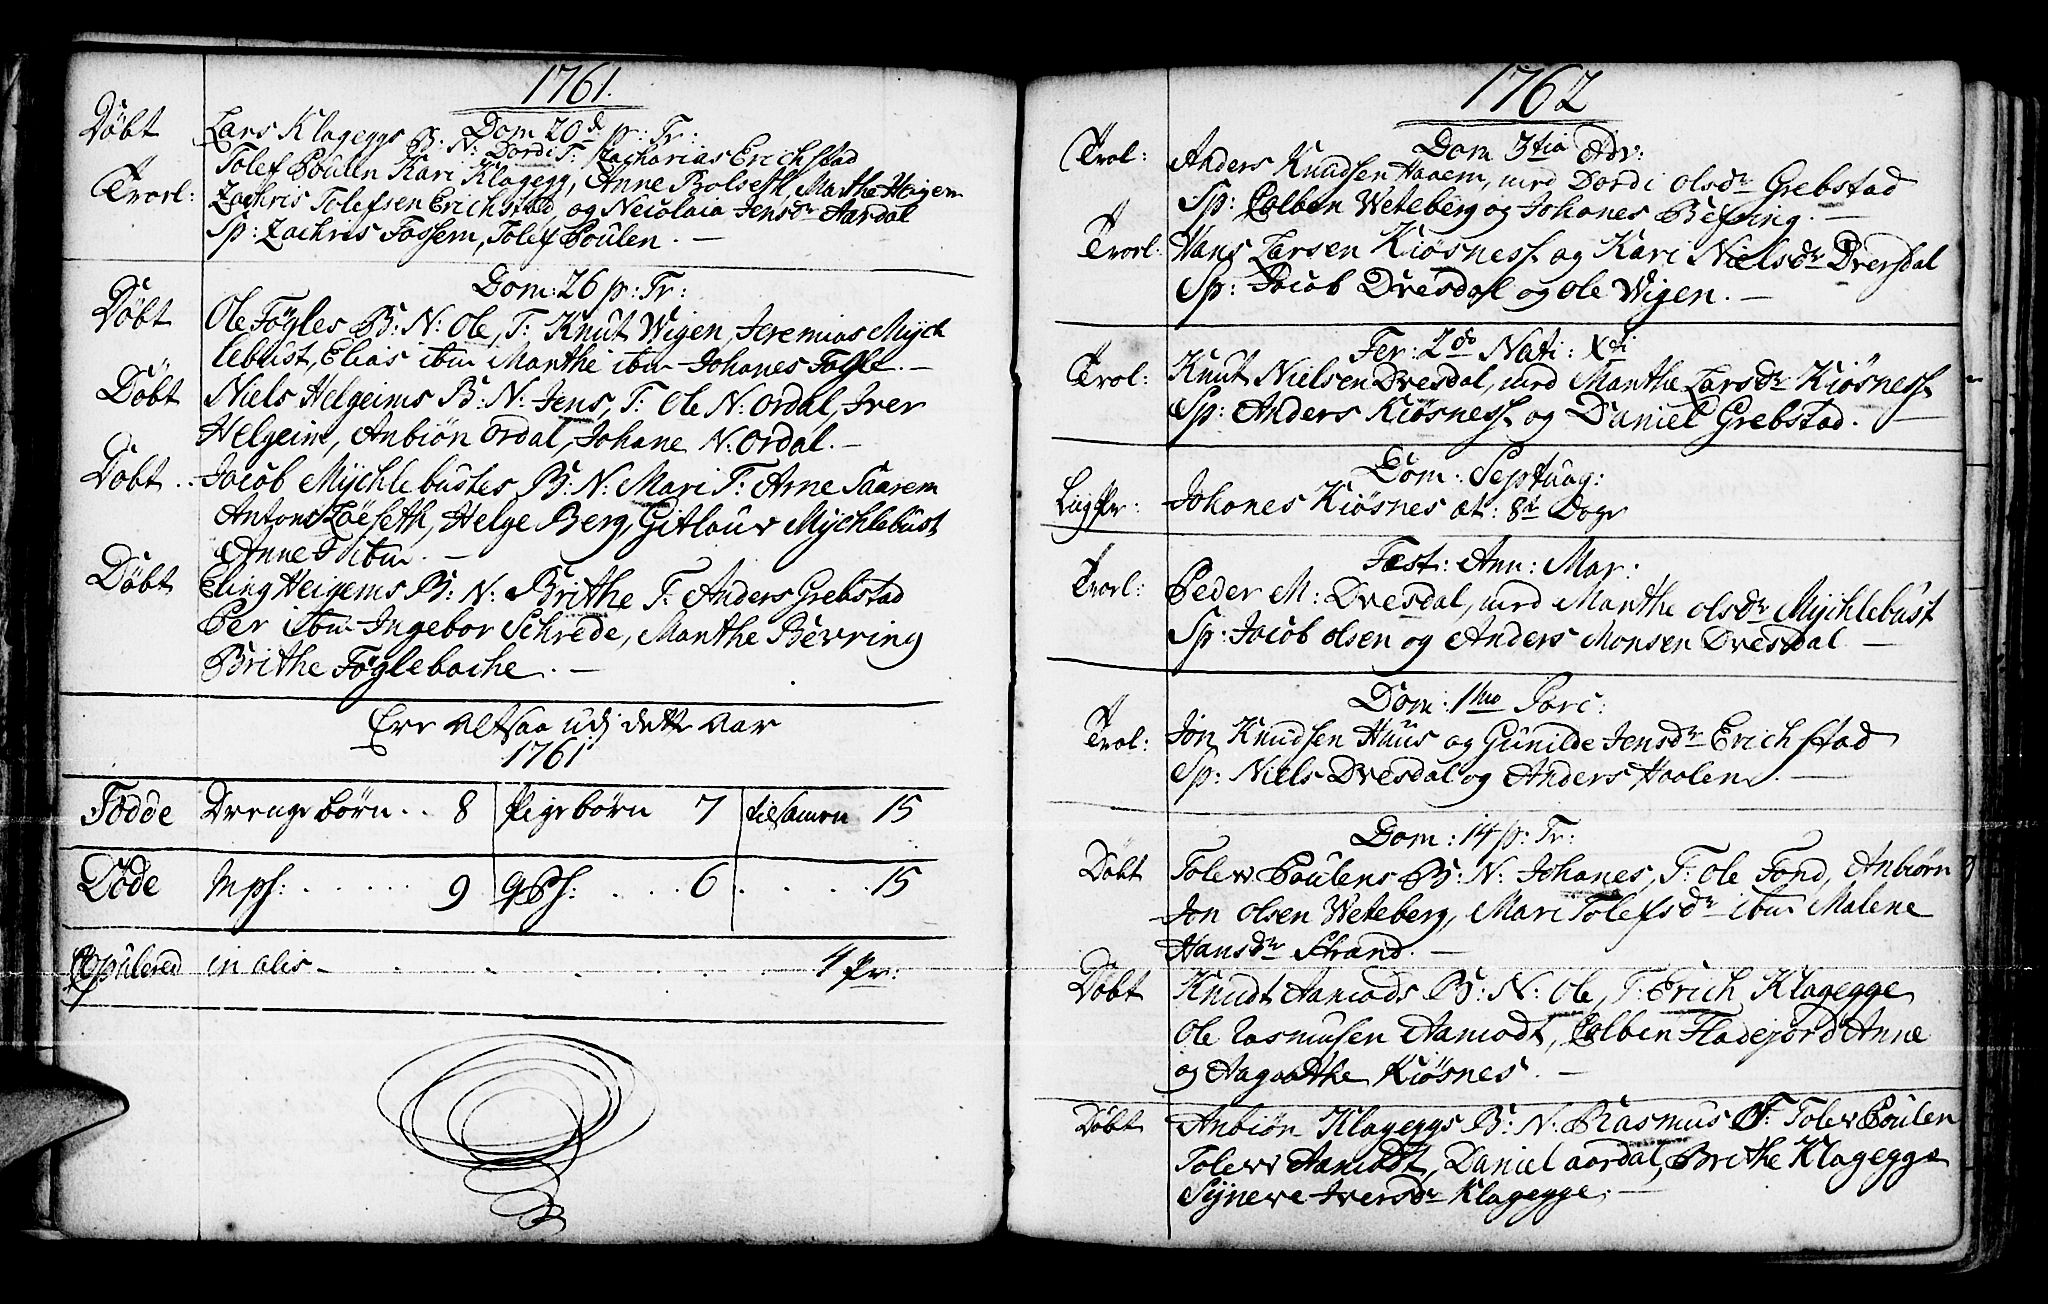 1761.
Dom 20 d p: Tr:
Döbt Lars Klageggs B: N: Dordi T: Zacharias Erichstad
Tolef Poulen Kari Klagegg, Anne Bolseth, Marthe Heigem
Trorl: Zachris Tolefsen Erichstad, og Nicolaia Jensdr Aardal
Sp: Zachris Fossem, Tolef Poulen. —
Dom: 26 p: Tr:
Döbt Ole Föglес B: N: Ole, T: Knut Wigen, Jeremias Mych
lebust, Elias ibm Marthe ibm Johanes Fogle. —
Döbt Niels Helgeims B: N: Jens, T: Ole N: Ordal, Iver
Helgeim, Anbiön Ordal, Johane N: Ordal. —
Döbt Jacob Mychlebustes B: N: Mari T: Arne Saarem
Antons Löeseth, Helge Berg, Gitlauv Mychlebust
Anne ibm. —
Döbt Eling Heigems B: N: Brithe T: Anders Grebstad
Per ibm Ingebor Schrede, Marthe Bevring
Brithe Föglebache. —
Ere altsaa udj dette Aar
1761
Födde Drenge börn . . 8 Pige börn 7 tilsamen 15
Döde Mpß: . . . . . 9 qPß: . . . 6 . . . . 15
Copulered in alis — . . . . . . . 4 Pr:
1762
Dom 3tia Adv:
Trol: Anders Knudsen Haaem, med Dordi Olsdr Grebstad
Sp: Colben Weteberg og Johanes Befring. —
Trorl: Hans Larsen Kiösness og Kari Nielsdr Dvesdal
Sp: Jacob Dvesdal og Ole Wigen. —
Fer: 2do Nati: Xsti
Trol: Knut Nielsen Dvesdal, med Marthe Larsdr Kiösness
Sp: Anders Kiösness og Daniel Grebstad. —
Dom: Septuag:
Liigpr: Johanes Kiösnes æt: 8t Dage
Fest: Ann: Mar:
Trorl: Peder M: Dvesdal, med Marthe Olsdr Mychlebust
Sp: Jacob Olsen og Anders Monsen Dvesdal —
Dom: 1ma Pasc:
Trol: Jon Knudsen Huus og Gunilde Jensdr Erichstad
Sp: Niels Dvesdal og Anders Haalen. —
Dom: 14 p: Tr:
Döbt Tolev Poulens B: N: Johanes, T: Ole Fond, Anbiörn
Jon Olsen Weteberg, Mari Tolefsdr ibm Malene
Hansdr Strand. —
Döbt Knudt Aamods B: N: Ole, T: Erich Klagegge
Ole Rasmusen Aamodt, Colben Fladejord Anne
og Aagaathe Kiösnes. —
Döbt Anbiön Klageggs B: N: Rasmus T: Tolev Poulen
Tolev Aamodt, Daniel Aardal, Brithe Klagegge
Synneve Iversdr Klagegge. —